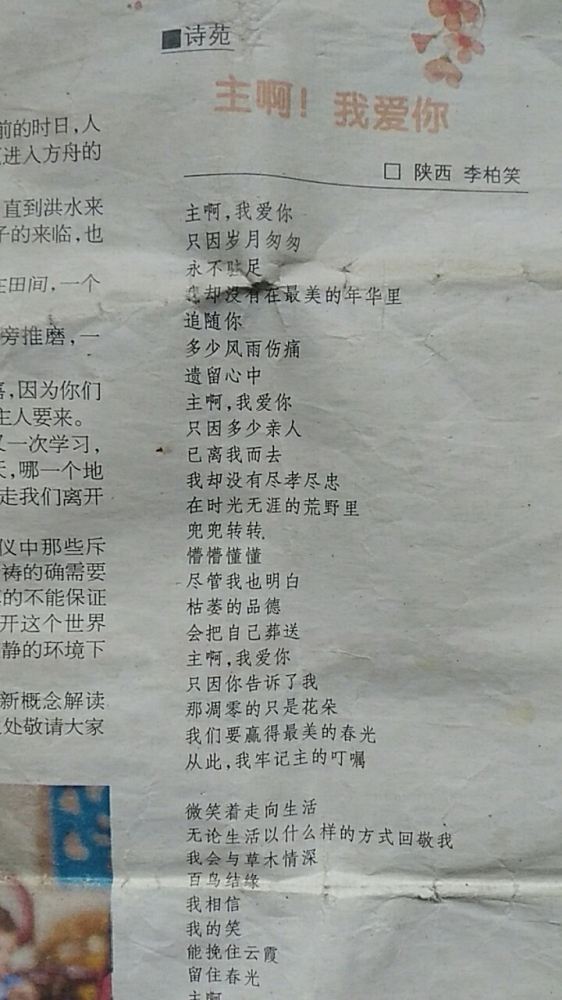 前的时日,人
进入方舟的
直到洪水来
子的来临,也
在田间,一个
旁推磨,一
喜,因为你们
主人要来。
又一次学习,
天,哪一个地
走我们离开
仪中那些斥
祷的确需要
的不能保证
开这个世界
静的环境下
新概念解读
处敬请大家
■诗苑
主啊!我爱你
□ 陕西 李柏笑
主啊,我爱你
只因岁月匆匆
永不驻足
却没有在最美的年华里
追随你
多少风雨伤痛
遗留心中
主啊,我爱你
只因多少亲人
已离我而去
我却没有尽孝尽忠
在时光无涯的荒野里
兜兜转转
懵懵懂懂
尽管我也明白
枯萎的品德
会把自己葬送
主啊,我爱你
只因你告诉了我
那凋零的只是花朵
我们要赢得最美的春光
从此,我牢记主的叮嘱
微笑着走向生活
无论生活以什么样的方式回敬我
我会与草木情深
百鸟结缘
我相信
我的笑
能挽住云霞
留住春光
主啊